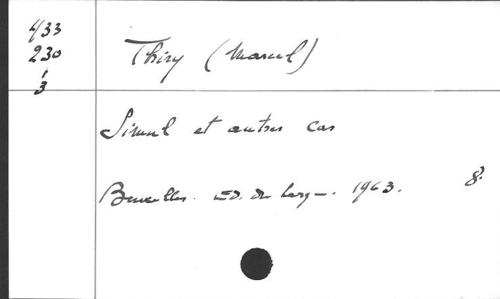 433
230
1
3
Thiry (Marcel)
Simul et autres cas
Bruxelles. Ed. du large. 1963. 8.